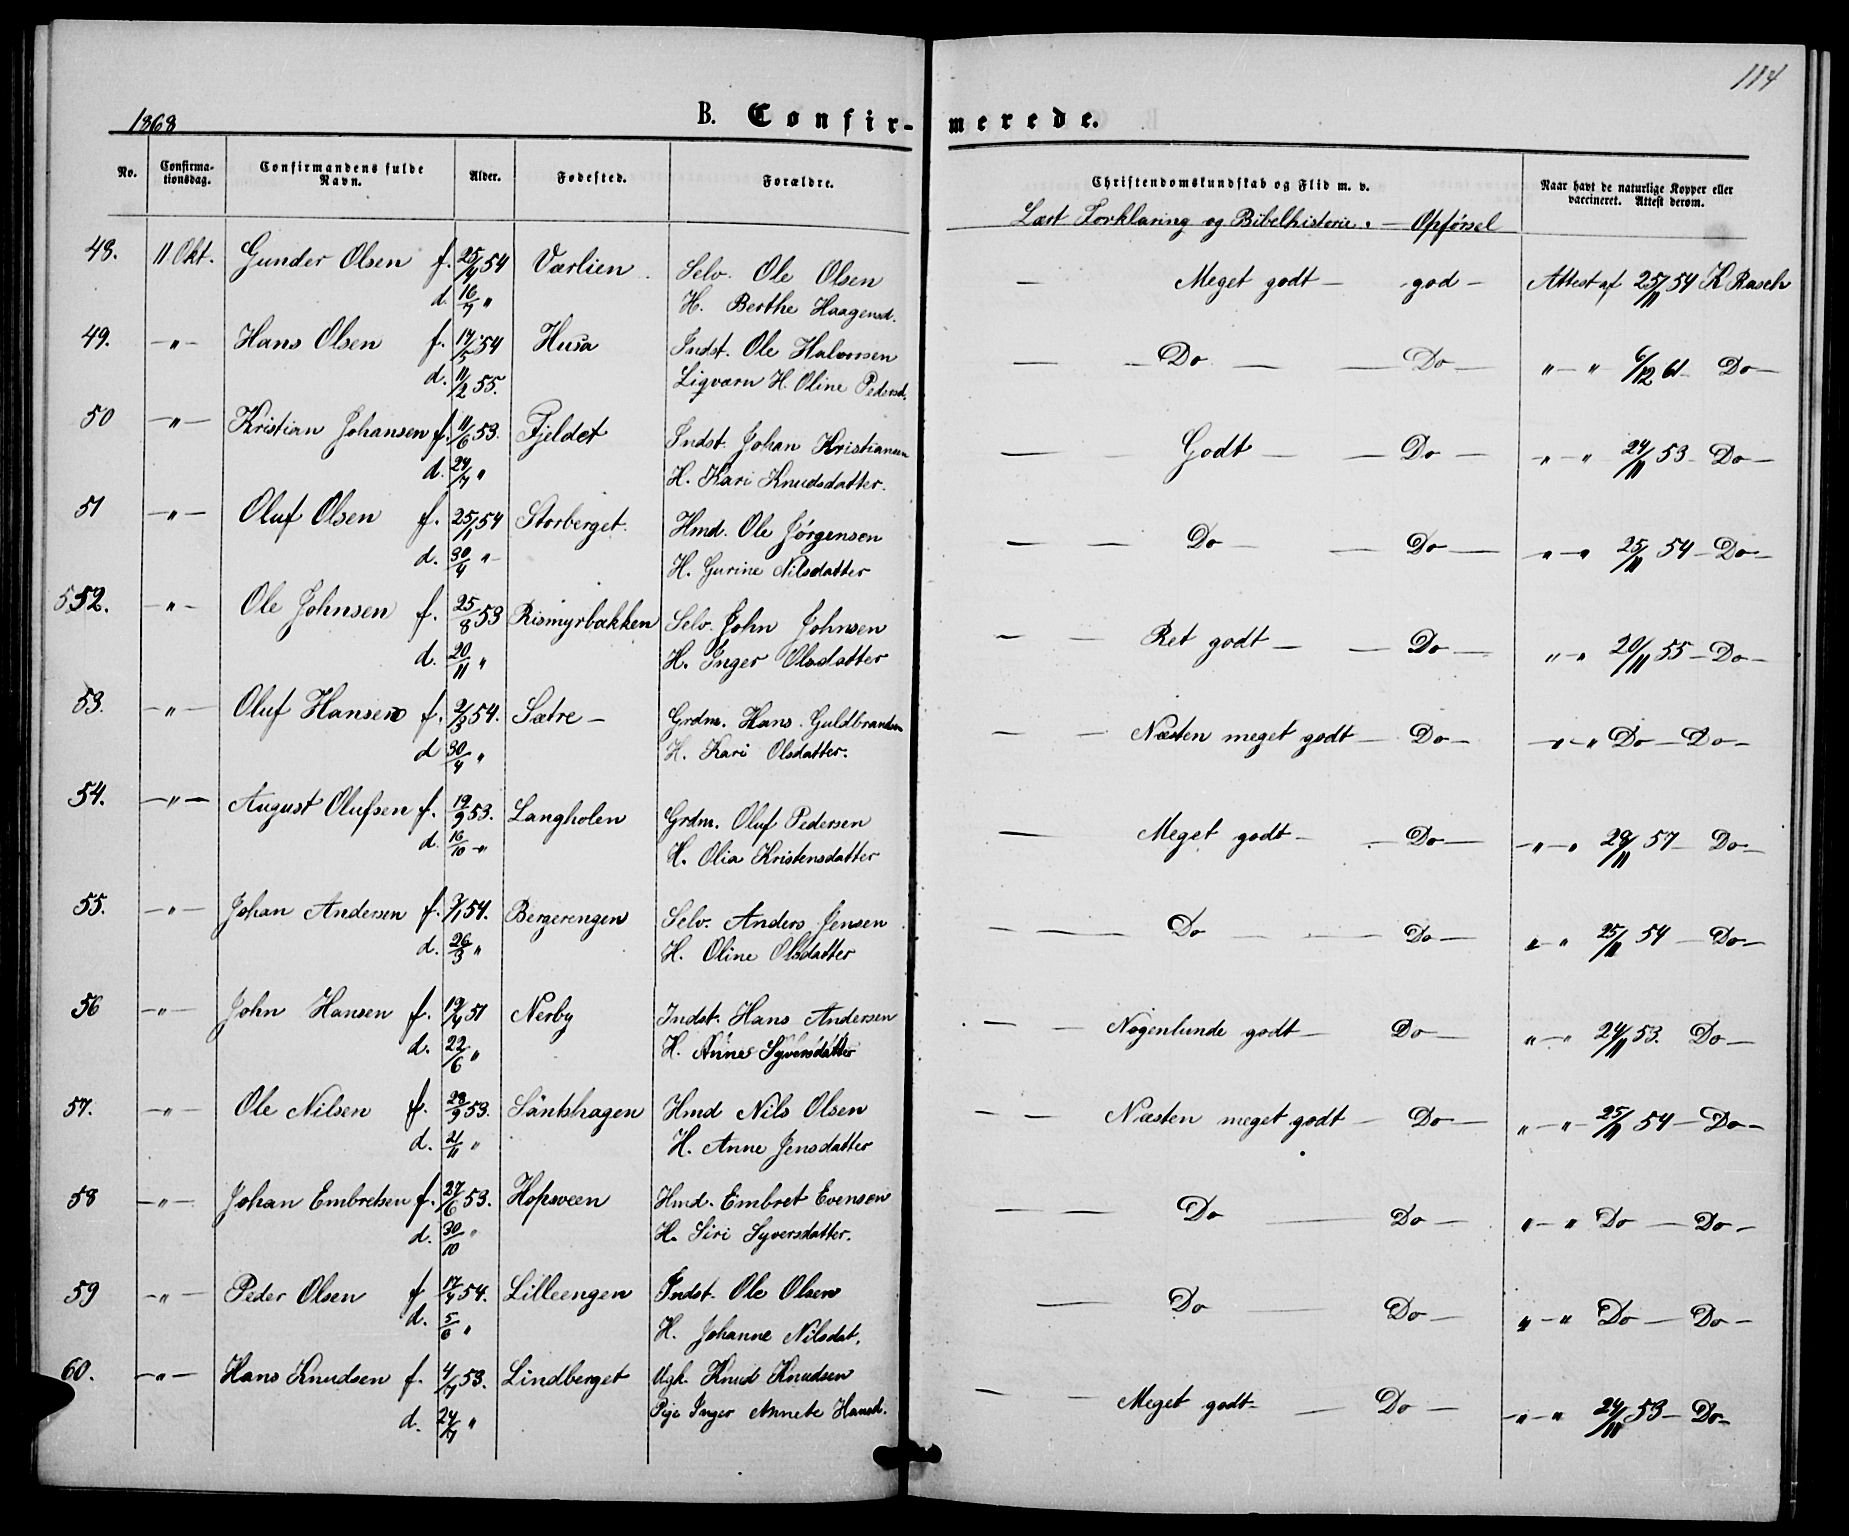 114
1868
B. Confir-merede.
No. Confirma-tionsdag. Confirmandens fulde Navn. Alder. Fødested. Forældre. Christendomskundskab og Flid m. v. Naar havt de naturlige Kopper eller vaccineret. Attest derom.
Læst Forklaring og Bibelhistorie. — Opførsel
48. 11 Okt. Gunder Olsen f. 25/4 54 Værlien Selv. Ole Olsen — Meget godt — god — Attest af 25/11 54 K Rasch
d. 16/7 " H. Berthe Haagensd.
49. —"— Hans Olsen f. 14/5 54 Husa Indst. Ole Halvorsen — Do — Do — " — " 6/12 61 — Do —
d. 11/2 55. Ligværn H. Oline Pedersd.
50 —"— Kristian Johansen f. 11/6 53. Fjeldet Indst. Johan Kristiansen — Godt — Do — " — " 24/11 53 — Do —
d. 24/7 " H. Kari Knudsdatter.
51 —"— Oluf Olsen f. 25/1 54 Storberget. Hmd. Ole Jörgensen — Do — Do — " — " 25/11 54 — Do —
d. 30/4 " — H. Gurine Nilsdatter
552. —"— Ole Johnsen f. 25/8 53 Rismyrbakken Selv. John Johnsen — Ret godt — Do — " — " 20/11 55 — Do —
d. 20/11 " H. Inger Olsdatter
53. —"— Oluf Hansen f. 2/3 54. Sætre — Grdm. Hans Guldbrandsen — Næsten meget godt — Do — — " — " Do — Do —
d 30/4 " H. Kari Olsdatter.
54. —"— August Olufsen f. 19/9 53. Langholen Grdm. Oluf Pedersen — Meget godt — Do — — " — " 28/11 57 — Do —
d. 16/10 — " H. Olia Kristensdatter
55. —"— Johan Andersen f. 3/1 54. Bergerengen Selv. Anders Jensen — Do — Do — " — " 25/11 54 — Do —
d. 26/3 " H. Oline Olsdatter
56 —"— John Hansen f. 19/4 51 Nerby Indst. Hans Andersen — Nogenlunde godt — Do — " — " 24/11 53. Do —
d. 22/6 " H. Anne Syversdatter
57. —"— Ole Nilsen f. 28/9 53. Säntshagen Hmd Nils Olsen — Næsten meget godt — Do — " — " — 25/11 54 — Do —
d. 21/11 " H. Anne Jensdatter
58 —"— Johan Embretsen f. 27/6 53. Hopsveen Hmd. Embret Evensen — Do — Do — " — " Do — Do —
d. 30/10 " H. Siri Syversdatter.
59 —"— Peder Olsen f 17/4 54. Lilleengen Indst. Ole Olsen — Do — Do — " — " Do — Do —
d. 5/6 " H. Johanne Nilsdat.
60. —"— Hans Knudsen f. 4/7 53. Lindberget Ugk. Knud Knudsen — Meget godt — Do — — " — " 24/11 53 — Do —
d. 24/7 " Pige Inger Annete Hansd.